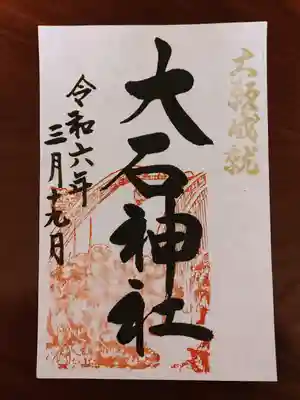 大願成就
大石神社
令和六年
三月十九日